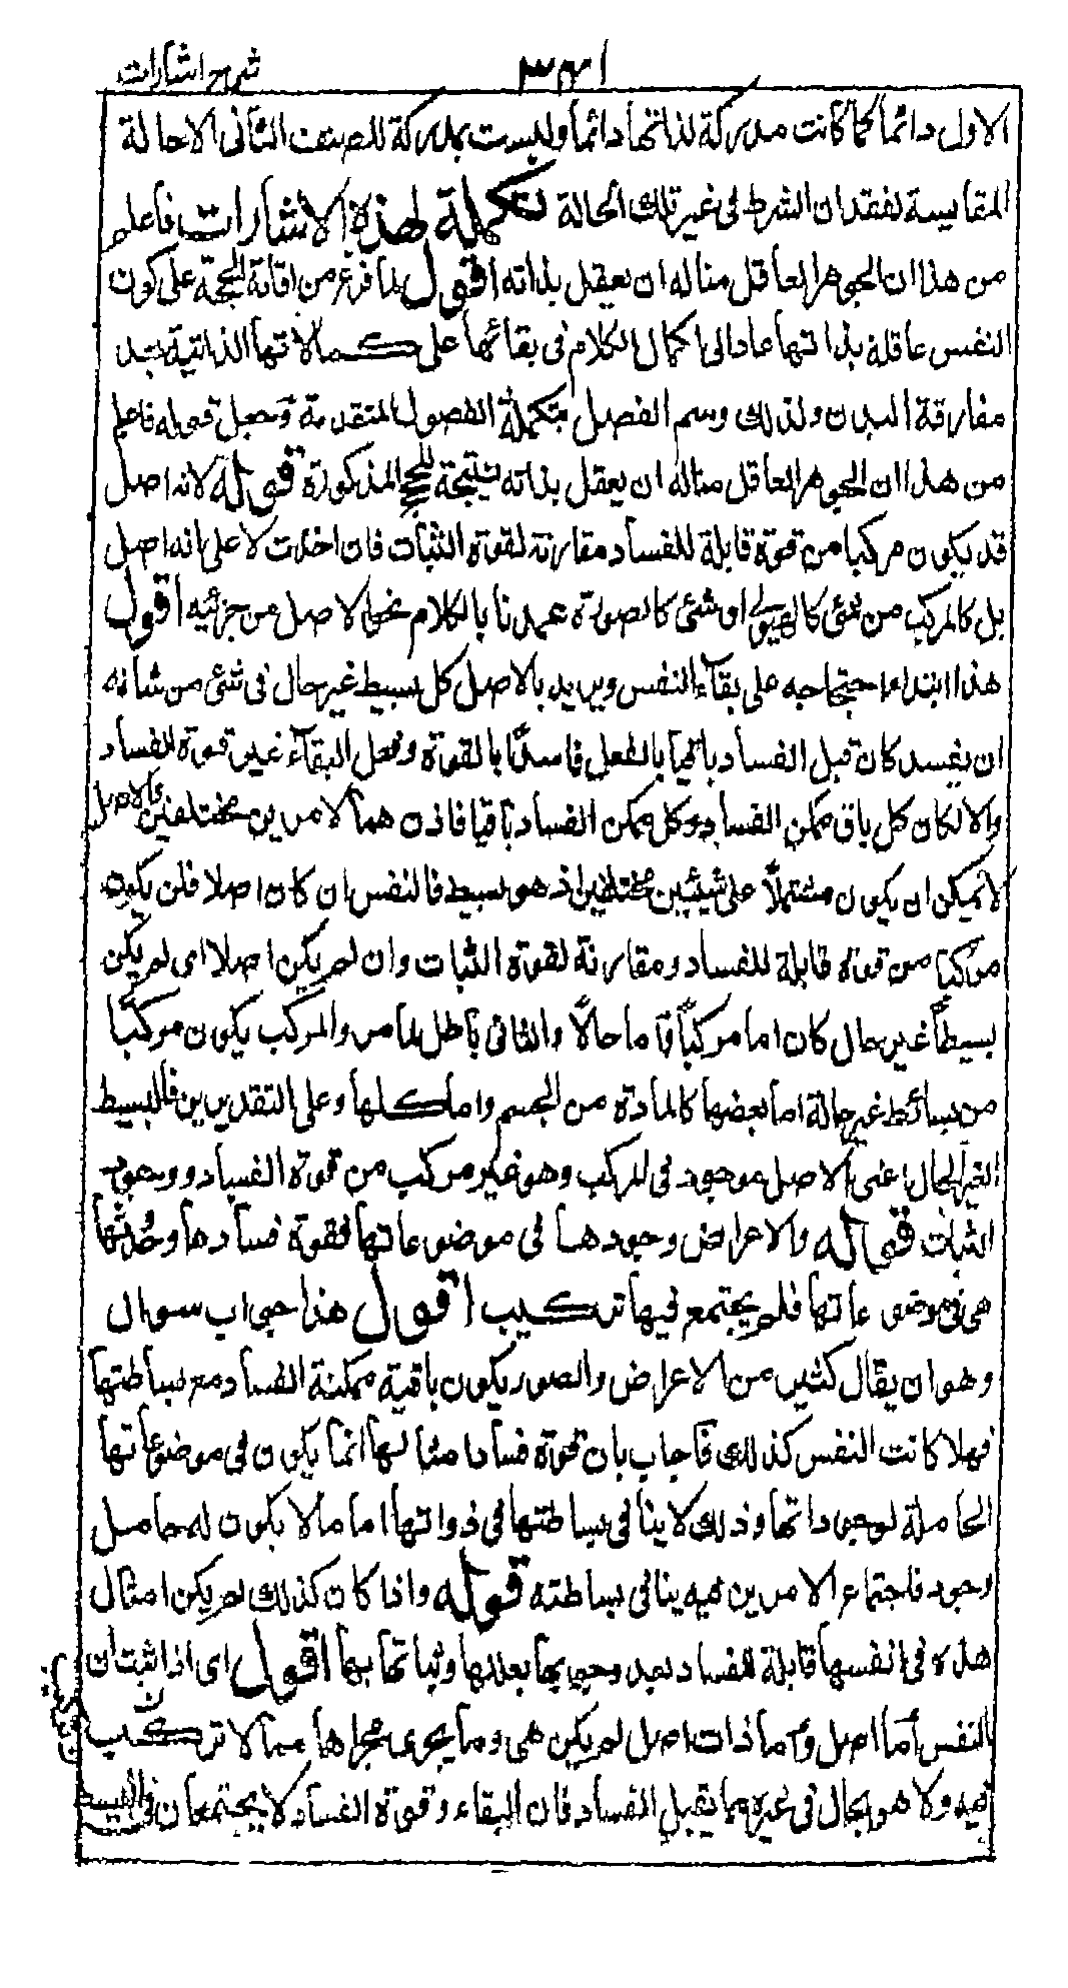 شرح اشارات
الاول دائما كما كانت مدركة لذاتها دائما وليست بمدركة للصنف الثانى الا حالة
المقايسة لفقدان الشرط فى غير تلك الحالة تكملة لهذه الاشارات فاعلم
من هذا ان الجوهر العاقل مناله ان يعقل بذاته اقول لما فرغ من اقامة الحجة على كون
النفس عاقلة بذاتها عاد الى اكمال الكلام فى بقائها على كمالاتها الذاتية بعد
مفارقة البدن ولذلك وسم الفصل بتكملة الفصول المتقدمة وجعل قوله فاعلم
من هذا ان الجوهر العاقل مناله ان يعقل بذاته نتيجة للحجج المذكورة قوله لانه اصل
قد يكون مركبا من قوة قابلة للفساد مقارنة لقوة الثبات فان اخذت لا على انه اصل
بل كالمركب من شئ كالهيولى او شئ كالصورة عمدنا بالكلام نحو الاصل من جزئيه اقول
هذا ابتداء احتجاجه على بقاء النفس ويريد بالاصل كل بسيط غير حال فى شئ من شانه
ان يفسد كان قبل الفساد باقيا بالفعل فاسدا بالقوة وفعل البقاء غير قوة الفساد
والا لكان كل باق ممكن الفساد وكل ممكن الفساد باقيا فاذن هما لامرين مختلفين والاصل
لا يمكن ان يكون مشتملا على شيئين مختلفين اذ هو بسيط فالنفس ان كان اصلا فلن يكون
مركبا من قوة قابلة للفساد ومقارنة لقوة الثبات وان لم يكن اصلا اى لم يكن
بسيطا غير حال كان اما مركبا واما حالا والثانى باطل لما مر والمركب يكون مركبا
من بسائط غير حالة اما بعضها كالمادة من الجسم واما كلها وعلى التقديرين فالبسيط
الغير الحال اعنى الاصل موجود فى المركب وهو غير مركب من قوة الفساد ووجود
الثبات قوله والاعراض وجودها فى موضوعاتها فقوة فسادها وحدثها
هى فى موضوعاتها فلم يجتمع فيها تركيب اقول هذا جواب سوال
وهو ان يقال كثير من الاعراض والصور يكون باقية ممكنة الفساد مع بساطتها
فهلا كانت النفس كذلك فاجاب بان قوة فساد امثالها انما يكون فى موضوعاتها
الحاملة لوجوداتها وذلك لا ينافى بساطتها فى ذواتها اما ما لا يكون له حامل
وجود فاجتماع الامرين فيه ينافى بساطته قوله واذا كان كذلك لم يكن امثال
هذه فى انفسها قابلة للفساد بعد وجوبها بعللها وثباتها بها اقول اى اذا ثبت ان
النفس اما اصل واما ذات اصل لم يكن هى وما يجرى مجراها مما لا تركب
فيه ولا هو بحال فى غيره مما يقبل الفساد فان البقاء وقوة الفساد لا يجتمعان فى البسيط